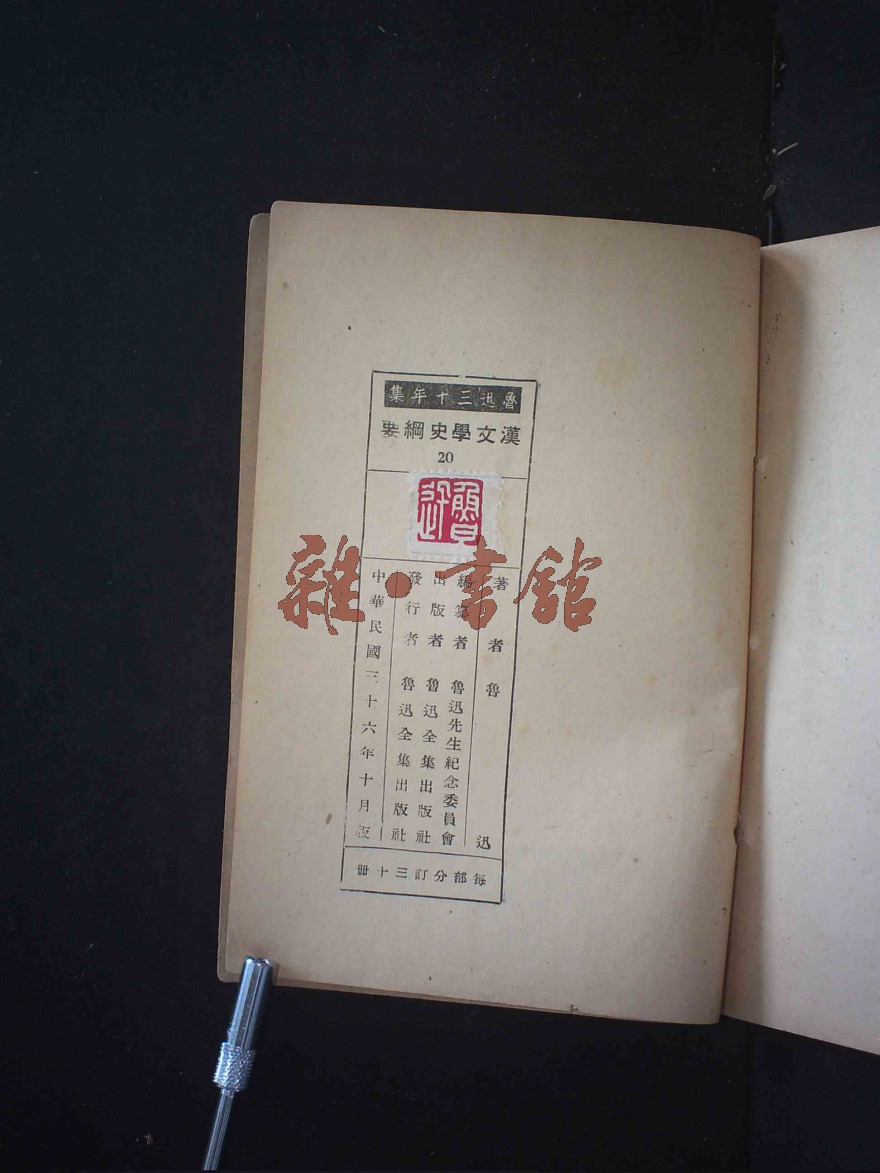 魯迅三十年集
漢文學史綱要
20
魯迅
著者 魯迅
編纂者 魯迅先生紀念委員會
出版者 魯迅全集出版社
發行者 魯迅全集出版社
中華民國三十六年十月版
每部分訂三十冊
雜·書館